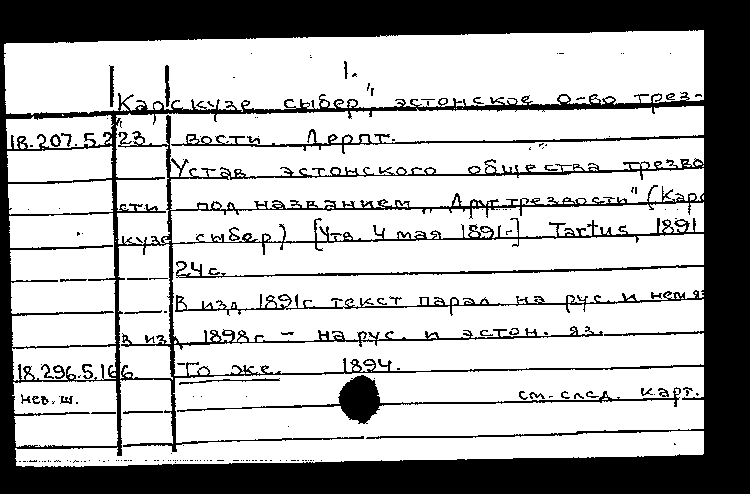 1.
"Карскузе сыбер", эстонское о-во трез-
18.207.5.223. вости. Дерпт.
Устав эстонского общества трезво
сти под названием „Друг трезвости" (Карс
кузе сыбер) [Утв. 4 мая 1891.-] Tartus, 1891
24 с.
В изд. 1891 г. текст парал. на рус. и нем. яз
в изд. 1898 г. - на рус. и эстон. яз.
18.296.5.166. То же. 1894.
нев. ш. см. след. карт.